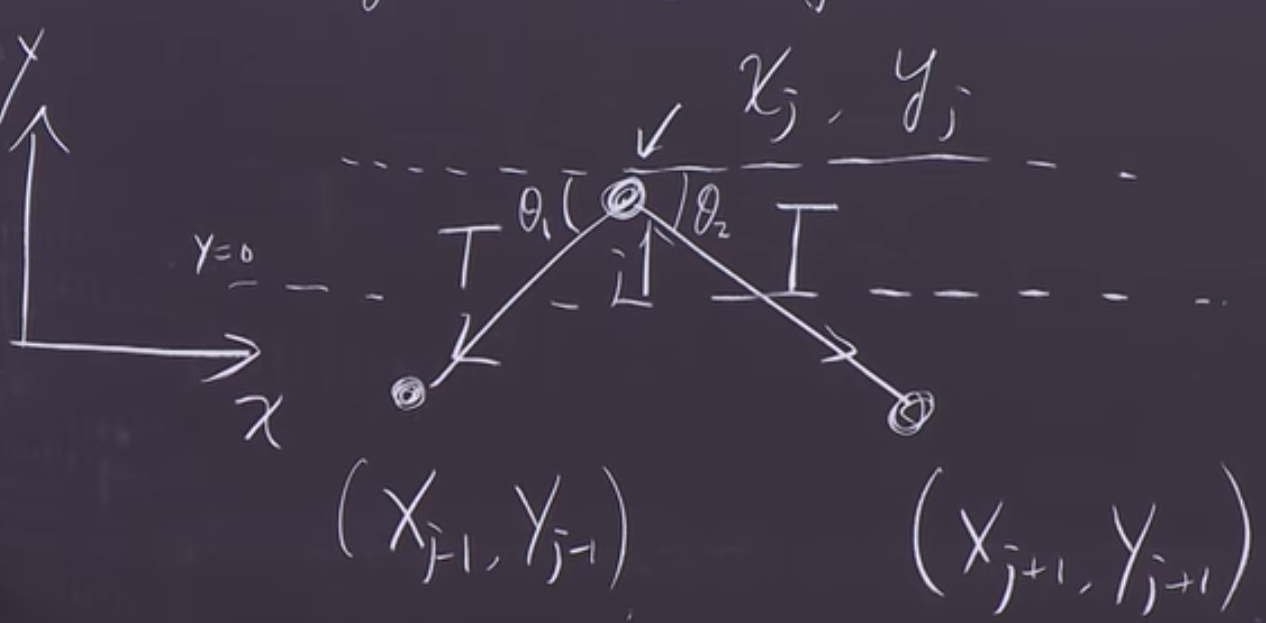 Y
x_j, y_j
θ₁ θ₂
T T
Y=0
j
x
(X_{j-1}, Y_{j-1}) (X_{j+1}, Y_{j+1})